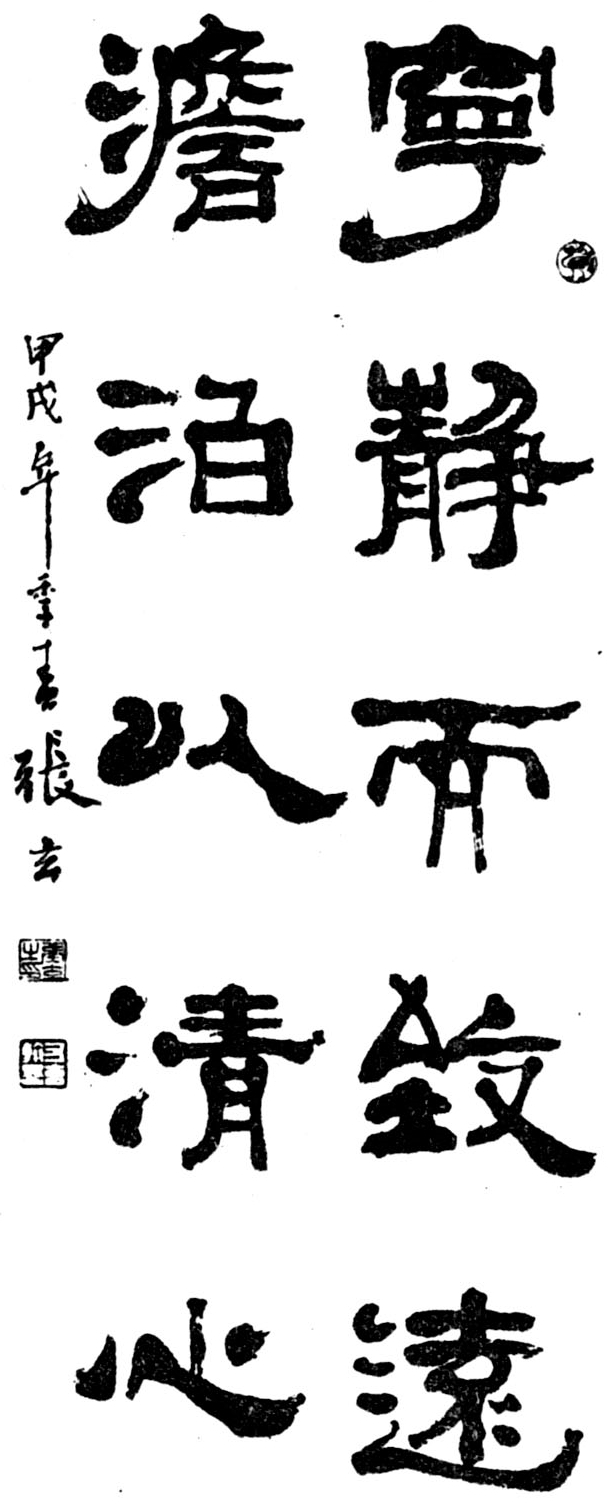 寧靜而致遠
澹泊以清心
甲戌年季春張玄